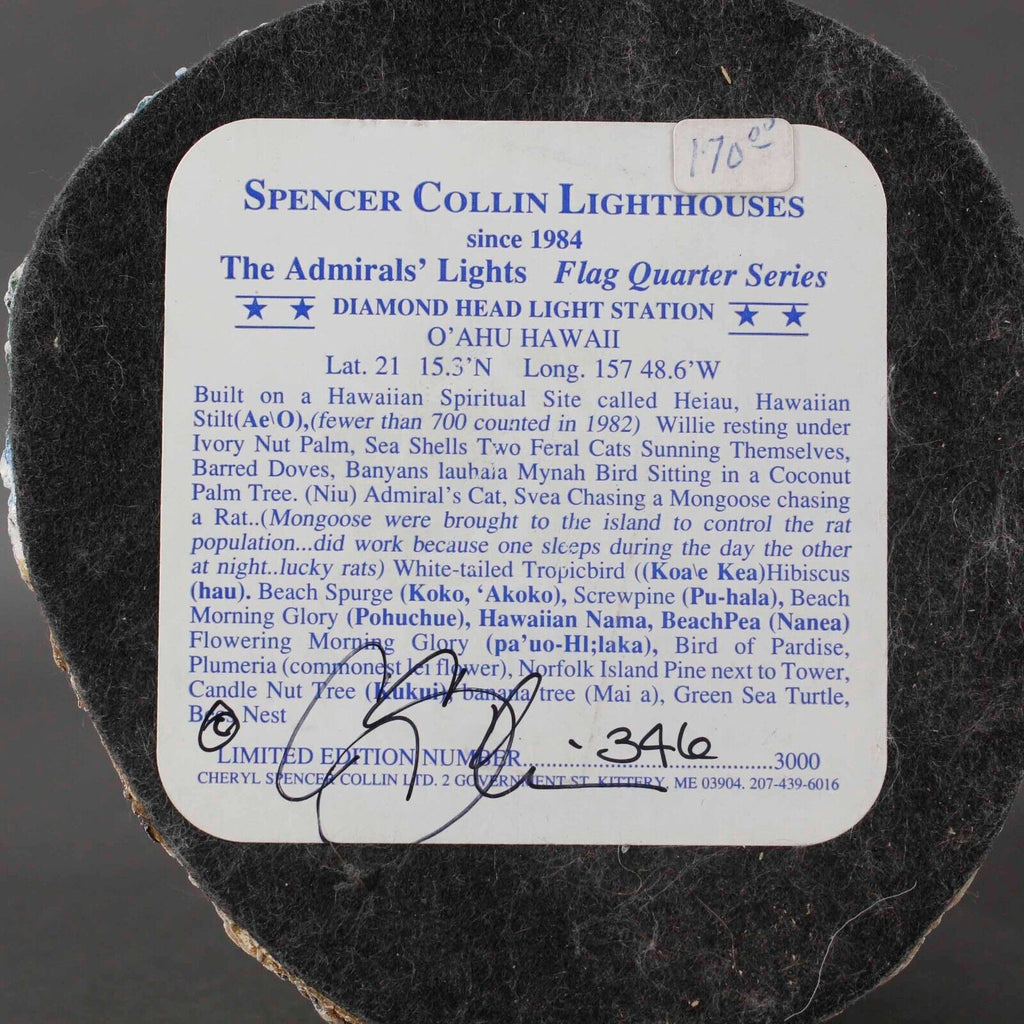 170⁰⁰
SPENCER COLLIN LIGHTHOUSES
since 1984
The Admirals' Lights Flag Quarter Series
DIAMOND HEAD LIGHT STATION
O'AHU HAWAII
Lat. 21 15.3'N Long. 157 48.6'W
Built on a Hawaiian Spiritual Site called Heiau, Hawaiian
Stilt(Ae\O),(fewer than 700 counted in 1982) Willie resting under
Ivory Nut Palm, Sea Shells Two Feral Cats Sunning Themselves,
Barred Doves, Banyans lauhaia Mynah Bird Sitting in a Coconut
Palm Tree. (Niu) Admiral's Cat, Svea Chasing a Mongoose chasing
a Rat..(Mongoose were brought to the island to control the rat
population...did work because one sleeps during the day the other
at night..lucky rats) White-tailed Tropicbird ((Koa\e Kea)Hibiscus
(hau). Beach Spurge (Koko, 'Akoko), Screwpine (Pu-hala), Beach
Morning Glory (Pohuchue), Hawaiian Nama, BeachPea (Nanea)
Flowering Morning Glory (pa'uo-Hl;laka), Bird of Pardise,
Plumeria (commonest lei flower), Norfolk Island Pine next to Tower,
Candle Nut Tree (Kukui) banana tree (Mai a), Green Sea Turtle,
Nest
©
LIMITED EDITION NUMBER.......346..........3000
CHERYL SPENCER COLLIN LTD. 2 GOVERNMENT ST. KITTERY, ME 03904. 207-439-6016